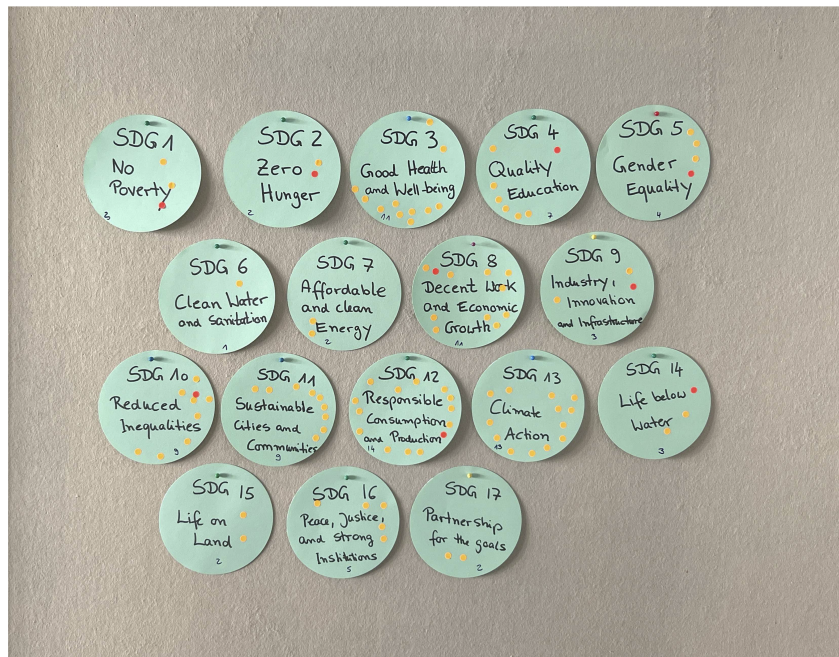 SDG 1
No
Poverty
3
SDG 2
Zero
Hunger
2
SDG 3
Good Health
and Well-being
11
SDG 4
Quality
Education
7
SDG 5
Gender
Equality
4
SDG 6
Clean Water
and Sanitation
1
SDG 7
Affordable
and clean
Energy
2
SDG 8
Decent Work
and Economic
Growth
11
SDG 9
Industry,
Innovation
and Infrastructure
3
SDG 10
Reduced
Inequalities
9
SDG 11
Sustainable
Cities and
Communities
9
SDG 12
Responsible
Consumption
and Production
14
SDG 13
Climate
Action
13
SDG 14
Life below
Water
3
SDG 15
Life on
Land
2
SDG 16
Peace, Justice,
and strong
Institutions
5
SDG 17
Partnership
for the goals
2